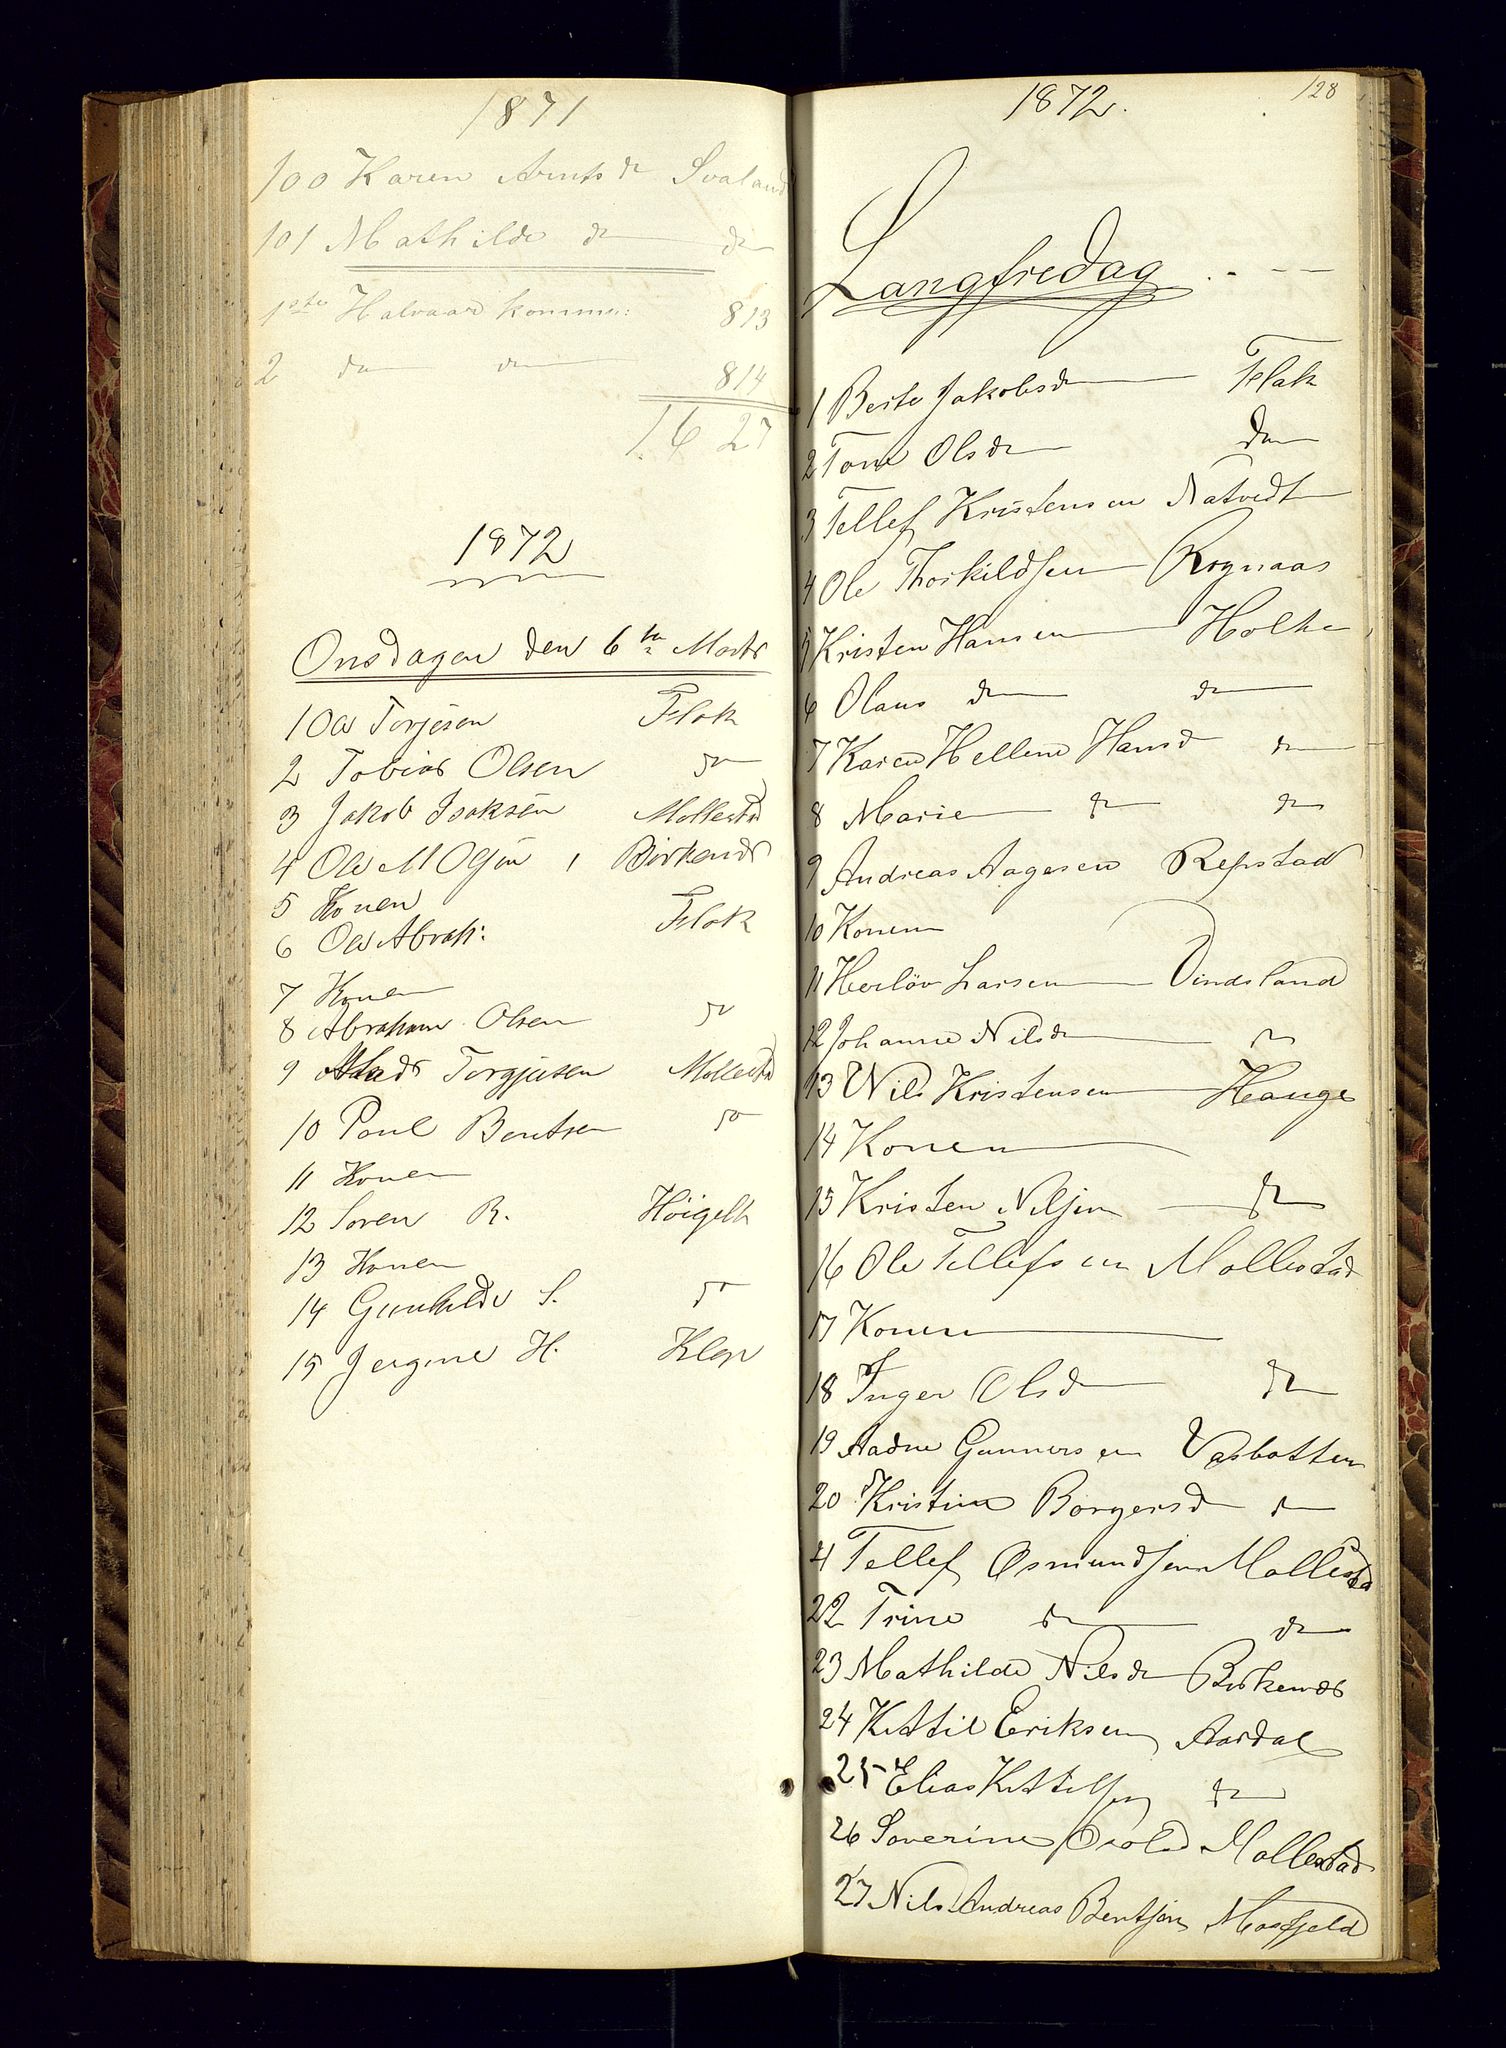 1871
100 Karen Arntsd Svaland
101 Mathilde do do
1ste Halvaar komm: 813
2 do do 814
1627
1872
Onsdagen den 6te Marts
1 Ole Torjesen Flak
2 Tobias Olsen do
3 Jakob Isaksen Mollestad
4 Ole M Olsen, Birkenæs
5 Konen
6 Ole Abrah: Flak
7 Konen
8 Abraham Olsen do
9 Mads Torgjusen Mollestad
10 Poul Bentsen do
11 Konen
12 Soren R. Höigelt
13 Konen
14 Gunhilde S. do
15 Jergine H. Klep
128
1872.
Langfredag
1 Berte Jakobsd Flak
2 Tone Olsd do
3 Tellef Kristensen Natvedt
4 Ole Thorkildsen Rognaas
5 Kristen Hansen Holte
6 Olaus do do
7 Karen Hellene Hansd do
8 Marie do do
9 Andreas Aagesen Repstad
10 Konen
11 Herlöv Larsen Vindsland
12 Johanne Nilsd do
13 Nils Kristensen Hauge
14 Konen
15 Kristen Nilsen do
16 Ole Tellefsen Mollestad
17 Konen
18 Inger Olsd do
19 Aadne Gunnersen Vasbotten
20 Kristine Borgersd do
21 Tellef Osmundsen Mollestad
22 Trine do do
23 Mathilde Nilsd Birkenæs
24 Kittil Eriksen Aardal
25 Elias Kittelsen do
26 Soverine Mollestad
27 Nils Andreas Bentsen Mosfjeld